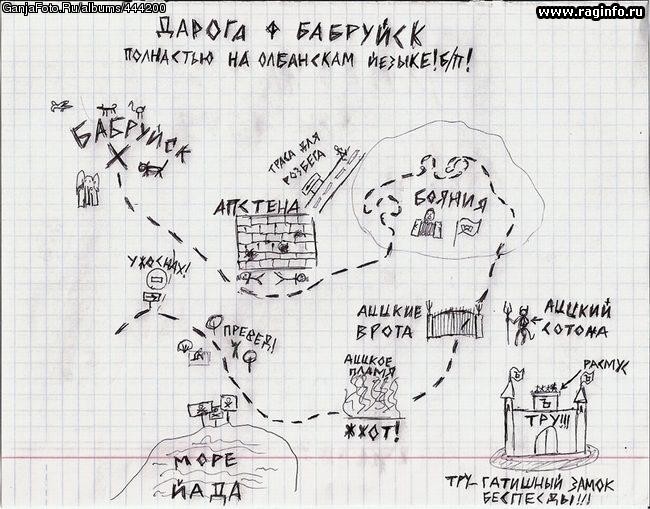 GanjaFoto.Ru/albums/444200
www.raginfo.ru
ДАРОГА Ф БАБРУЙСК
ПОЛНАСТЬЮ НА ОЛБАНСКАМ ЙЕЗЫКЕ! Б/П!
БАБРУЙСК
ТРАСА ДЛЯ
РОЗБЕГА
АПСТЕНА
БОЯНИЯ
УЖОСНАХ!
ПРЕВЕД!
АЦЦКИЕ
ВРОТА
АЦЦКИЙ
СОТОНА
АЦЦКОЕ
ПЛАМЯ
ЖЖОТ!
РАСМУС
ТРУ!!!
МОРЕ
ЙАДА
ТРУ-ГАТИШНЫЙ ЗАМОК
БЕСПЕСДЫ!!!